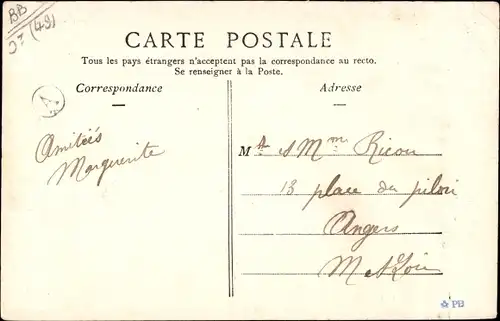 BB
(49)
CARTE POSTALE
Tous les pays étrangers n'acceptent pas la correspondance au recto.
Se renseigner à la Poste.
Correspondance
Adresse
A
Amitiés
Marguerite
Mr & Mme Ricou
13 place du pilori
Angers
M et Loire
PB